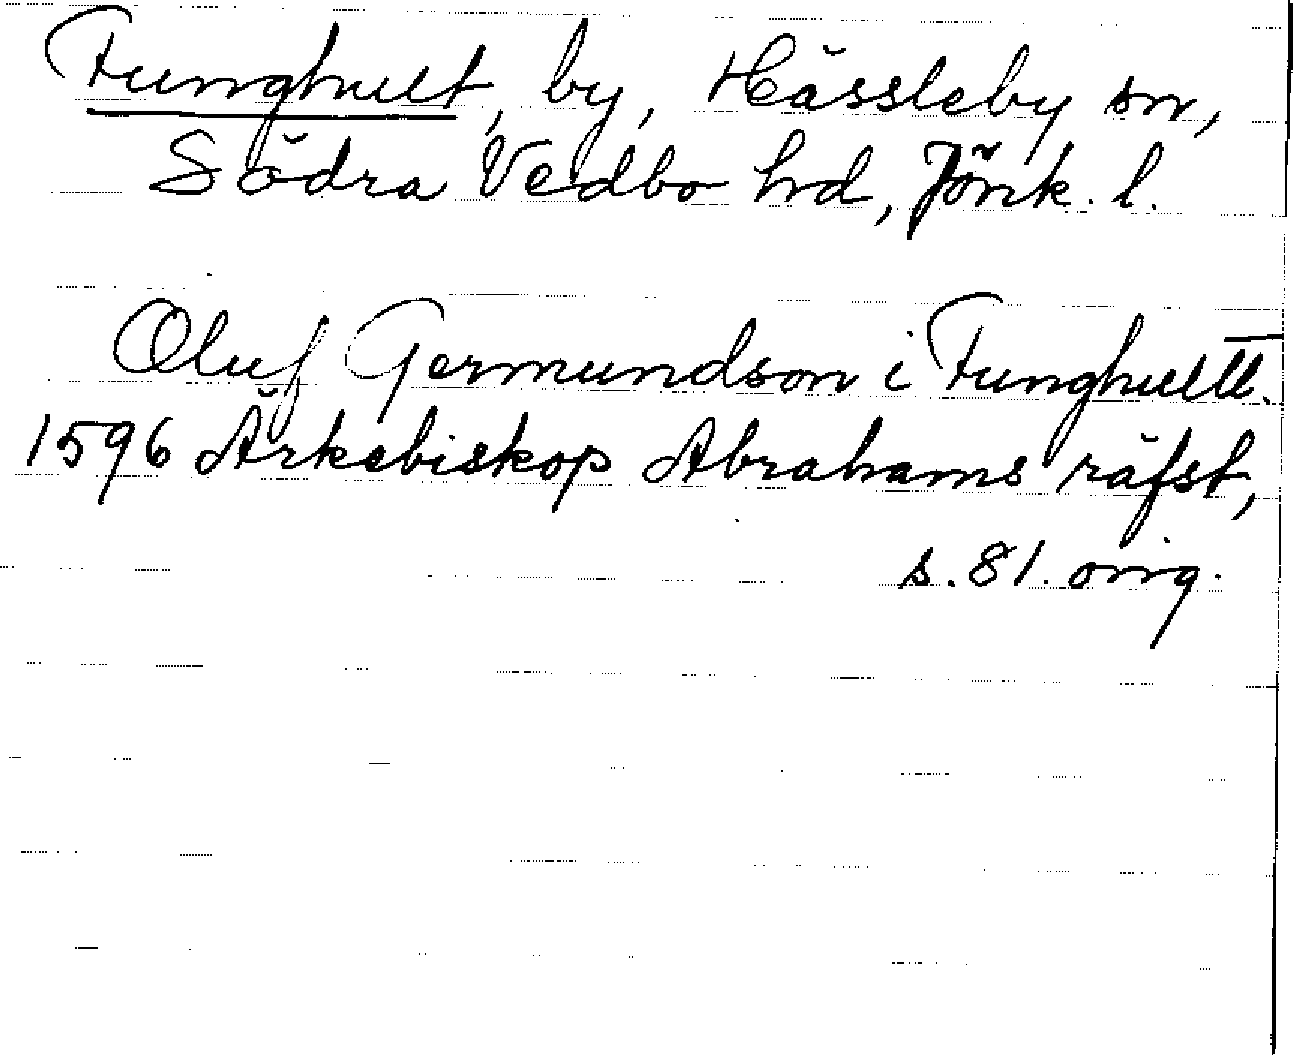 Funghult, by, Hässleby sn,
Södra Vedbo hrd, Jönk. l.
Oluf Germundson i Funghultt.
1596 Ärkebiskop Abrahams räfst,
s. 81. orig.